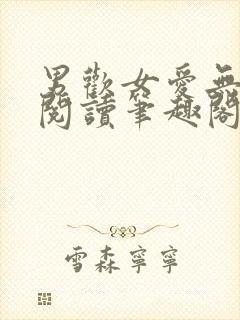 男歡女愛無
閱讀筆趣閣
雪森寧寧